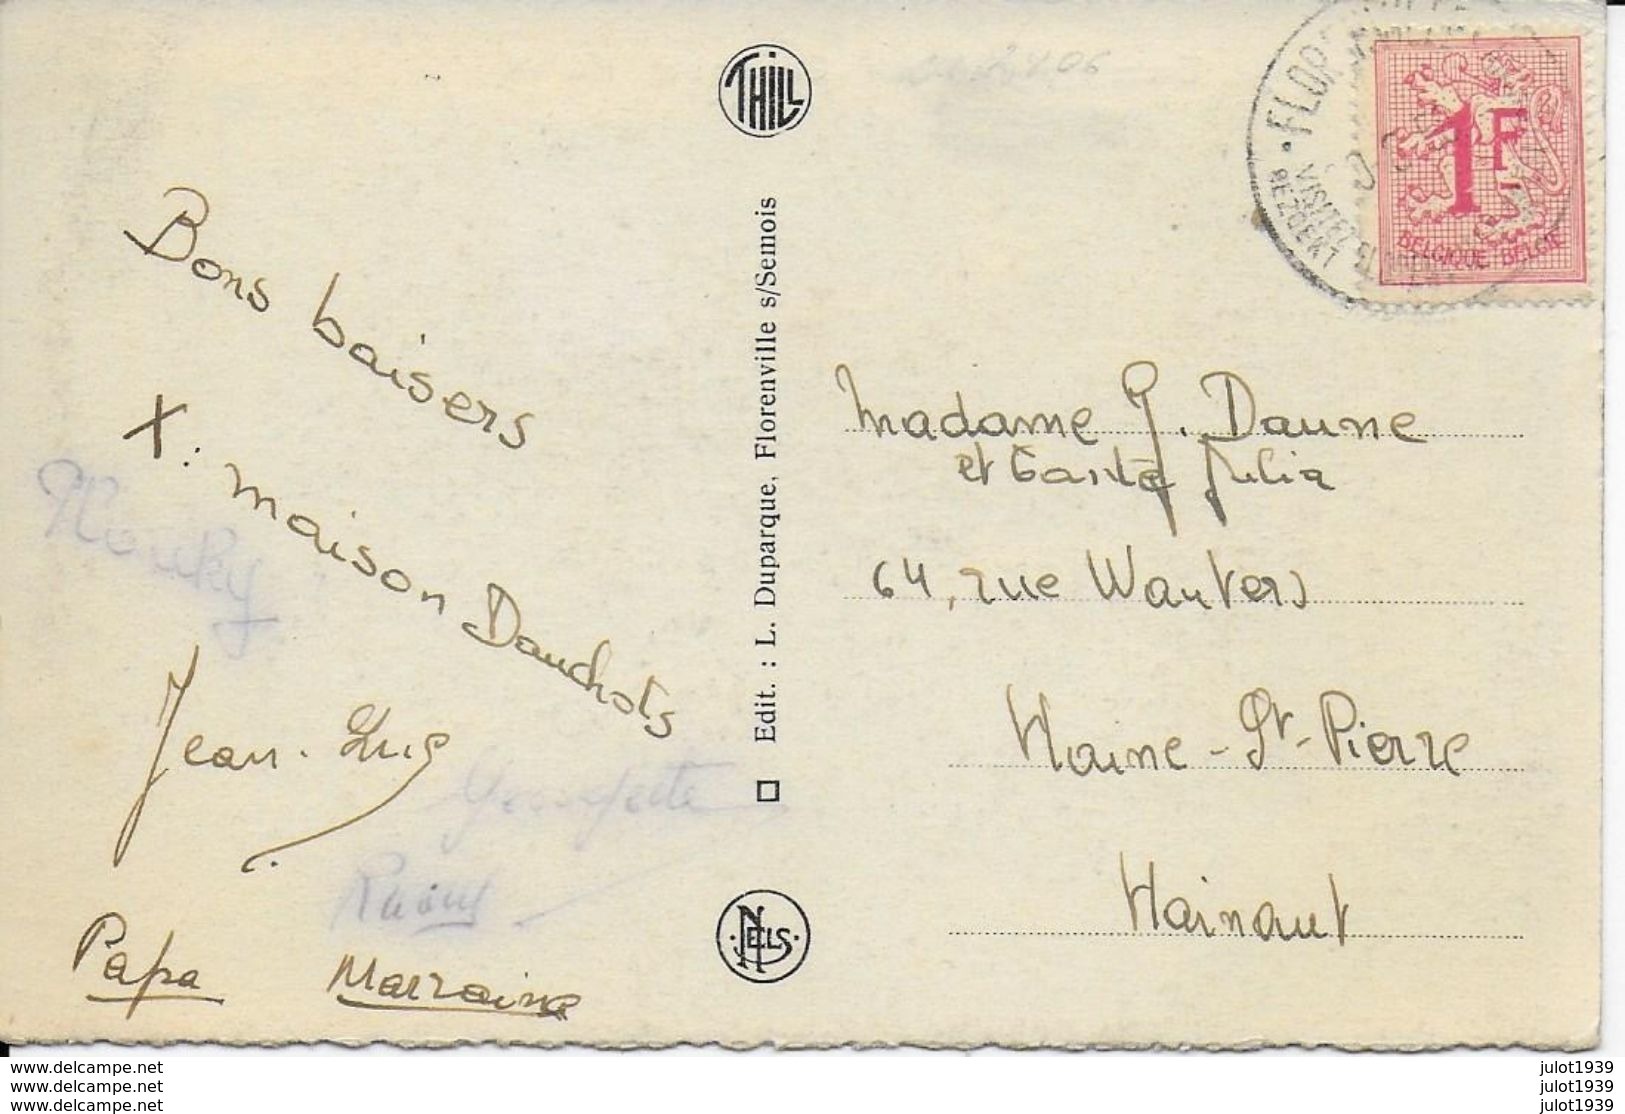 Bons baisers
X: maison Dauchots
Jean-Luc
Papa Marraine
THILL
Edit. : L. Duparque, Florenville s/Semois
NELS
1F
BELGIQUE BELGIE
VISITEZ
BEZOEKT
Madame G. Daune
et tante Julia
64, rue Wauters
Haine-St-Pierre
Hainaut
www.delcampe.net
www.delcampe.net
www.delcampe.net
julot1939
julot1939
julot1939